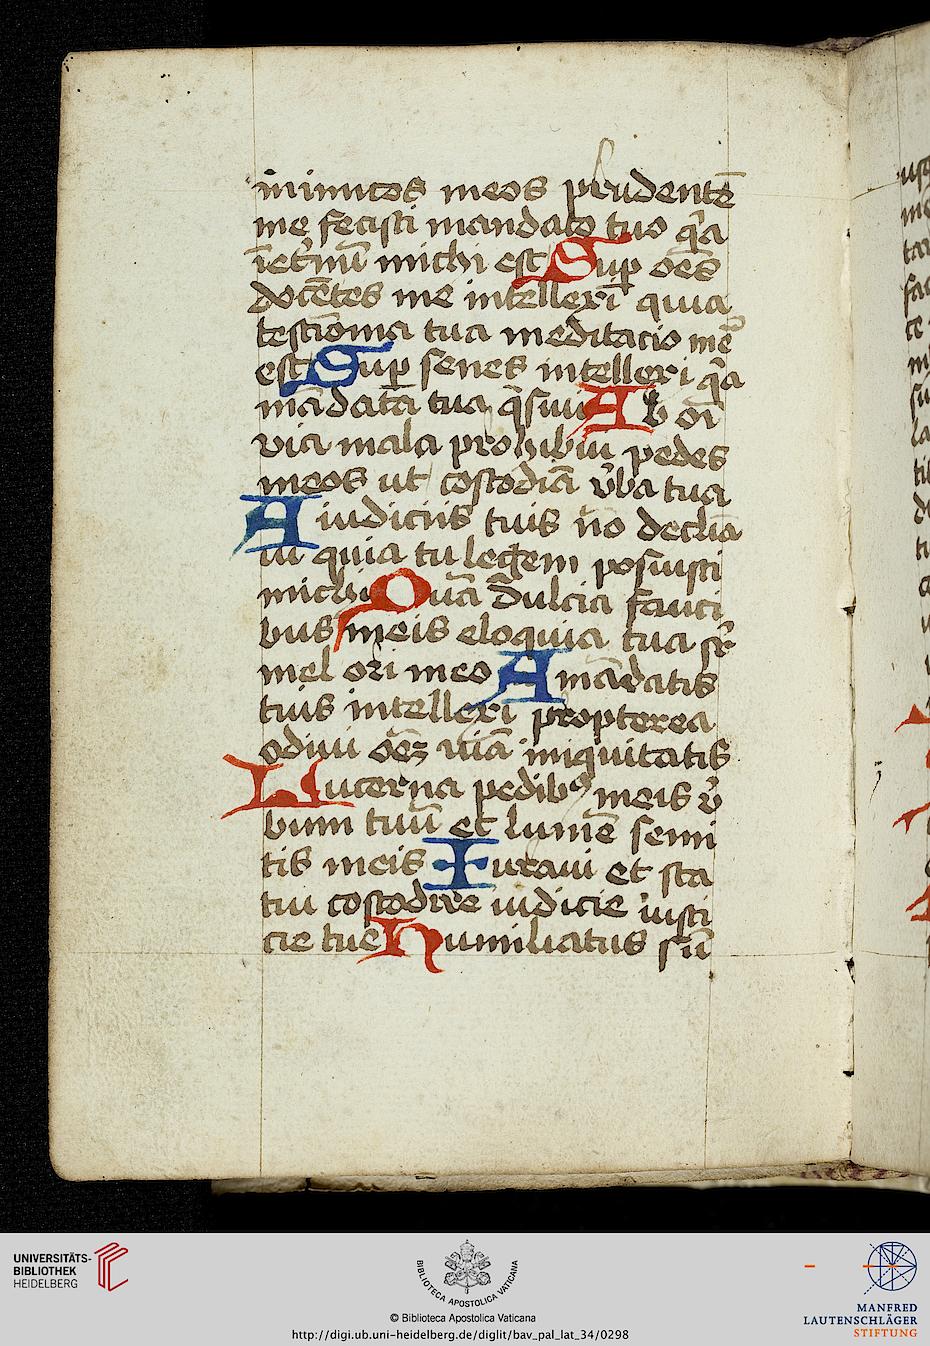 inimicos meos prudentē
me fecisti mandato tuo q̄a
īet͛nū michi est Sup̱ oēs
docētes me intellexi quia
testiōnia tua meditacio mē
est Sup̱ senes intellexi q̄a
mādata tua q̄siui Ab oī
via mala prohibui pedes
meos ut costodiā v͛ba tua
A iudiciis tuis nō declīa
ui quia tu legem posuisti
michi Quā dulcia fauci
bus meis eloquia tua sr̄
mel ori meo A mādatis
tuis intellexi propterea
odiui oēꝫ uiā iniquitatis
Lucerna pedibꝰ meis v͛
bum tuū et lumē semi
tis meis Iuraui et sta
tui costodire iudicie iusti
cie tue Humiliatus sū
UNIVERSITÄTS-
BIBLIOTHEK
HEIDELBERG
BIBLIOTECA APOSTOLICA VATICANA
© Biblioteca Apostolica Vaticana
http://digi.ub.uni-heidelberg.de/diglit/bav_pal_lat_34/0298
MANFRED
LAUTENSCHLÄGER
STIFTUNG